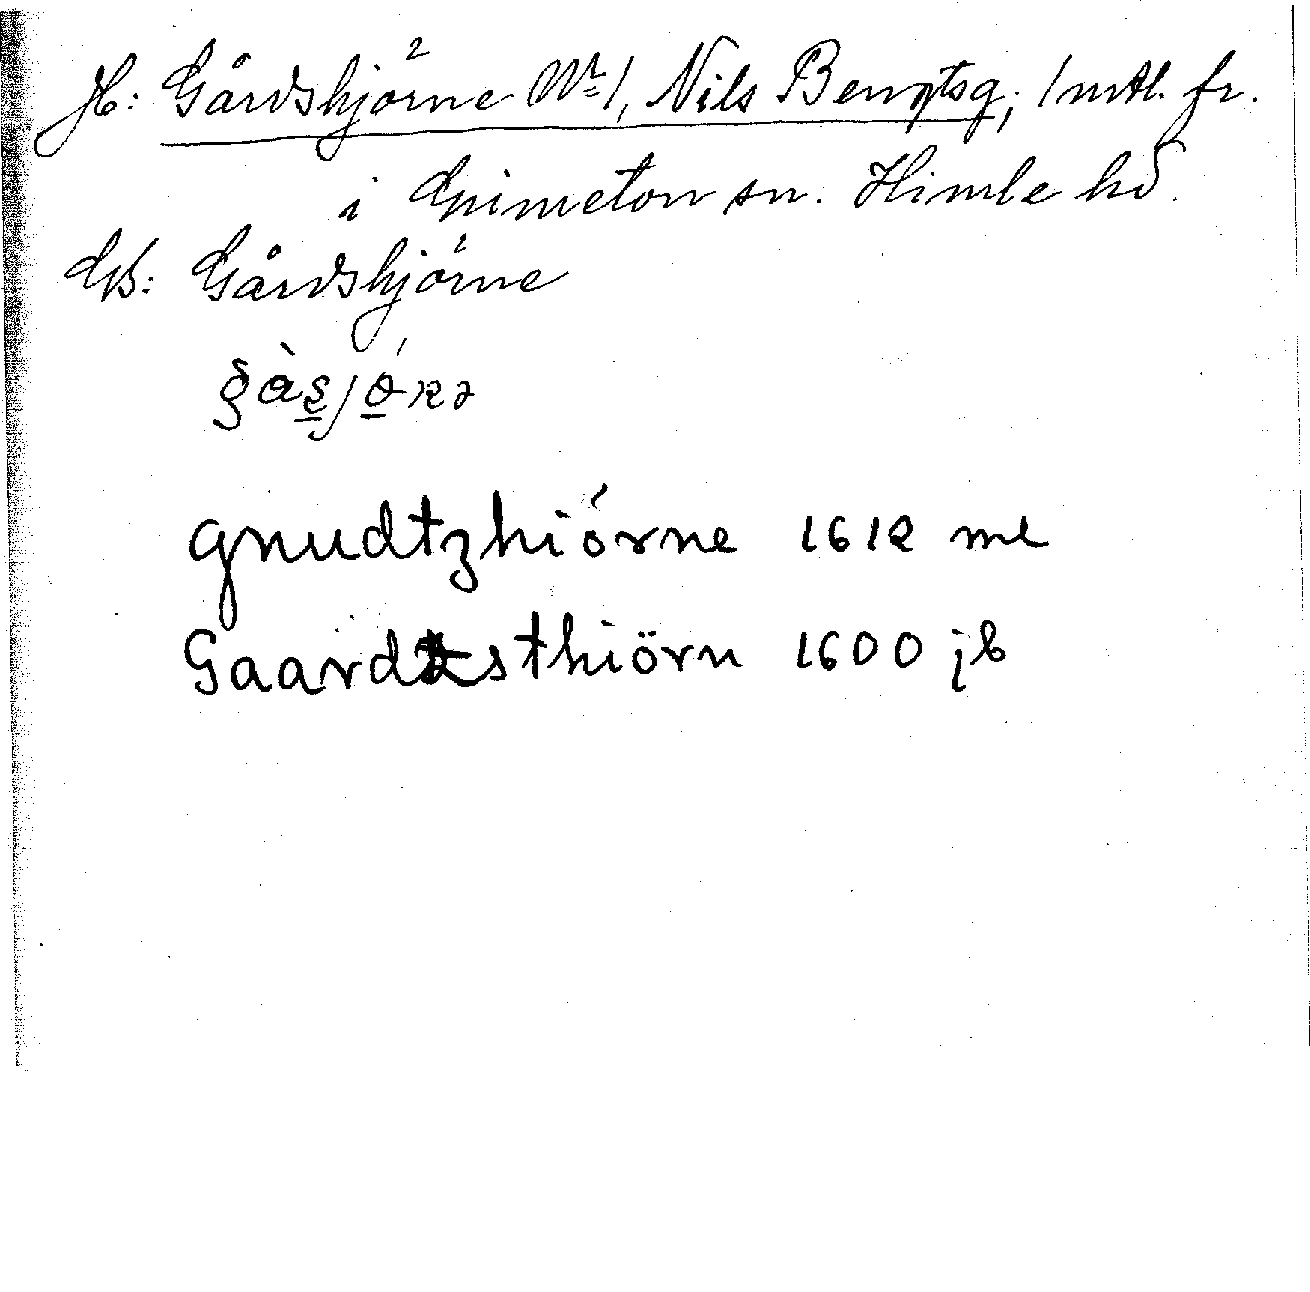 Jb: Gårdskjörne Nr 1, Nils Bengtsg; 1 mtl. fr.
i Grimeton sn. Himle hd.
Gb: Gårdskjörne
gnudtzhiörne 1612 ml
Gaardtsthiörn 1600 jb